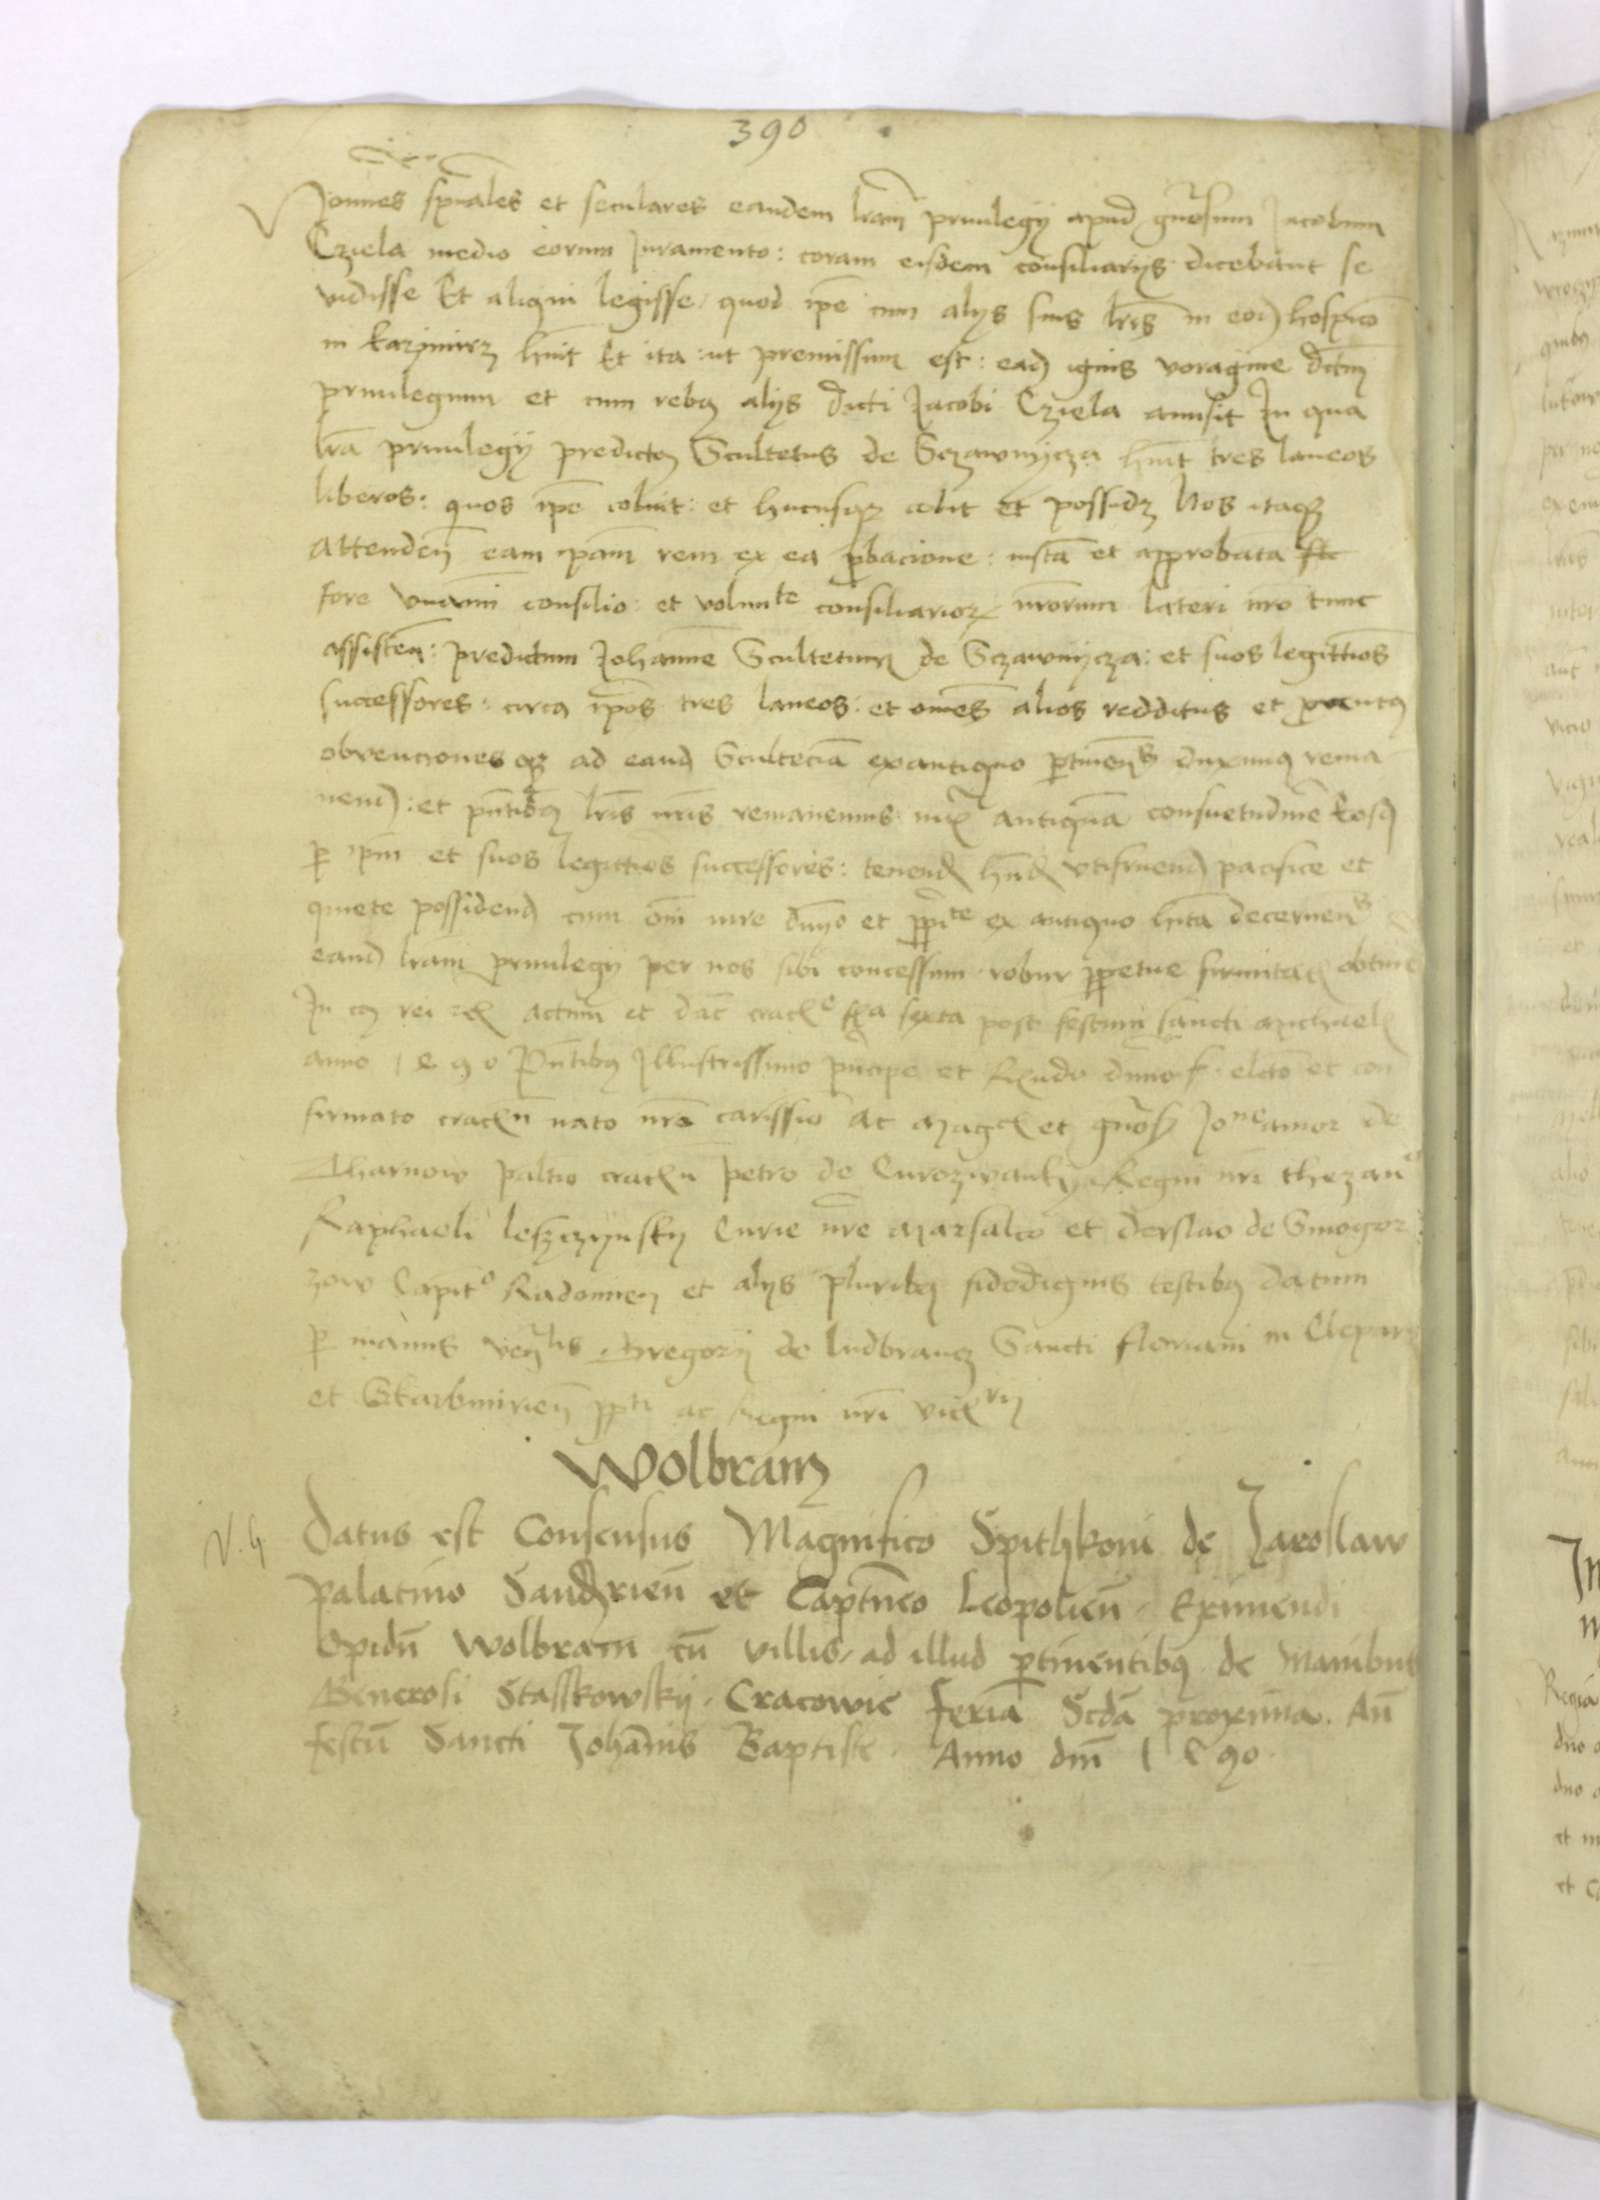 390
omnes spuales et seculares eandem lram priuilegy apud gnosum Jacobum
Cziela medio eorum Juramento: coram eisdem consiliarys dicebant se
vidisse Et aliqui legisse quod ipe cum alys suis lris in eod hospico
in kazymirz huit Et ita ut premissum est: ead ignis voragine dctm
priuilegium et cum rebus alys dicti Jacobi Cziela amisit In qua
lra priuilegy predictus Scultetus de Sczawnycza huit tres laneos
liberos: quos ipe coluit: et hucusq colit et possidz Nos itaq
Attenden eam ipam rem ex ea pbacione: iusta et approbata
fore vnanimi consilio: et volunte consiliarior nrorum lateri nro tunc
assisten: predictum Johanne Scultetum de Sczawnycza: et suos legittios
successores: circa ipos tres laneos: et omes alios redditus et prouentus
obvenciones q ad eand Scultecia exantiquo ptinens duximus rema
nend: et pntibus lris nris remanemus iux antiqua consuetudine Eosq
p ipm et suos legittios successores: tenend hnd vtifruend pacifice et
quiete possidend cum omi iure dnyo et ppte ex antiquo hita decernens
eand lram priuilegy per nos sibi concessum robur ppetue firmitatis obtinere
In cuius rei etc actum et dat crac fia sexta post festum sancti Michaelis
anno 1 e 9 0 Pntibus Illustrissimo principe et Rndo dnno f. elcto et con
firmato cracn nato nro carissio Ac Magcis et gnosis Jone amor de
Tharnow paltio cracn Petro de Curozwanky Regni nri thezau
Raphaeli leszczynsky Curie nre Marsalco et Derslao de Smogor
zow Capito Radomien et alys pluribus fidedignis testibus datum
p manus venlis Gregory de ludbrancz Sancti floriani in Clepar
et Skarbmirien ppti ac Regni nri vicry
Wolbram
Datus est Consensus Magnifico Spithkoni de Jaroslaw
Palatino Sandrien et Captneo Leopolien Eximendi
Opidu Wolbram cu villis ad illud ptinentibus de Manibus
Generosi Stasskowsky Cracowie feria Scda proxima An
festu Sancti Johanis Baptiste Anno dni 1 e 90